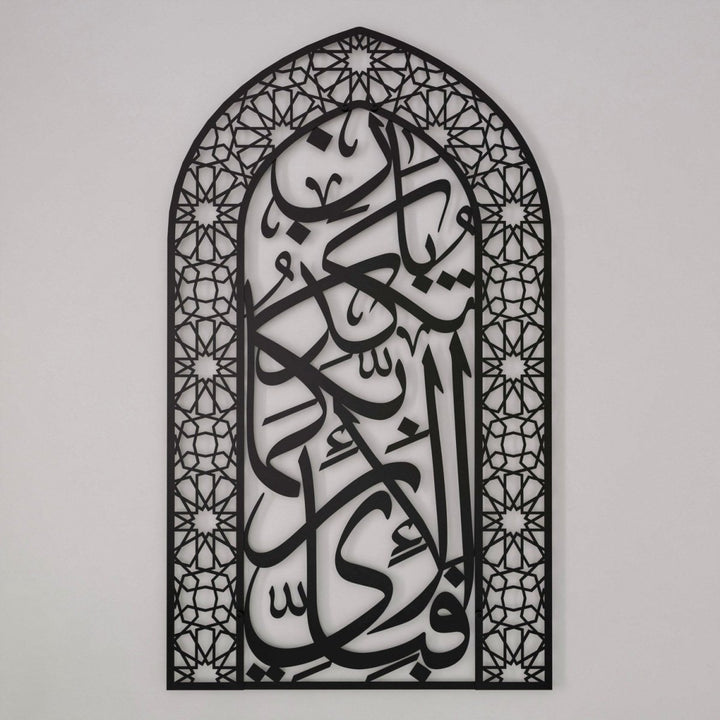 فبأيّ آلاء ربّكما تكذّبان